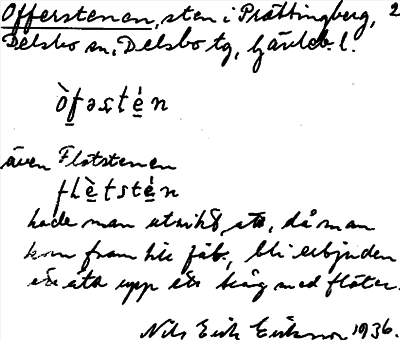 Offerstenen, sten i Prästingberg, 2
Delsbo sn, Delsbo tg, Gävleb. l.
ò̱fəsté̱n
även Flötstenen
flè̱tsté̱n
hade man utvikt, att, då man
kom fram till fäb., bli erbjuden
att äta upp ett tråg med flöter.
Nils Erik Eriksson 1936.